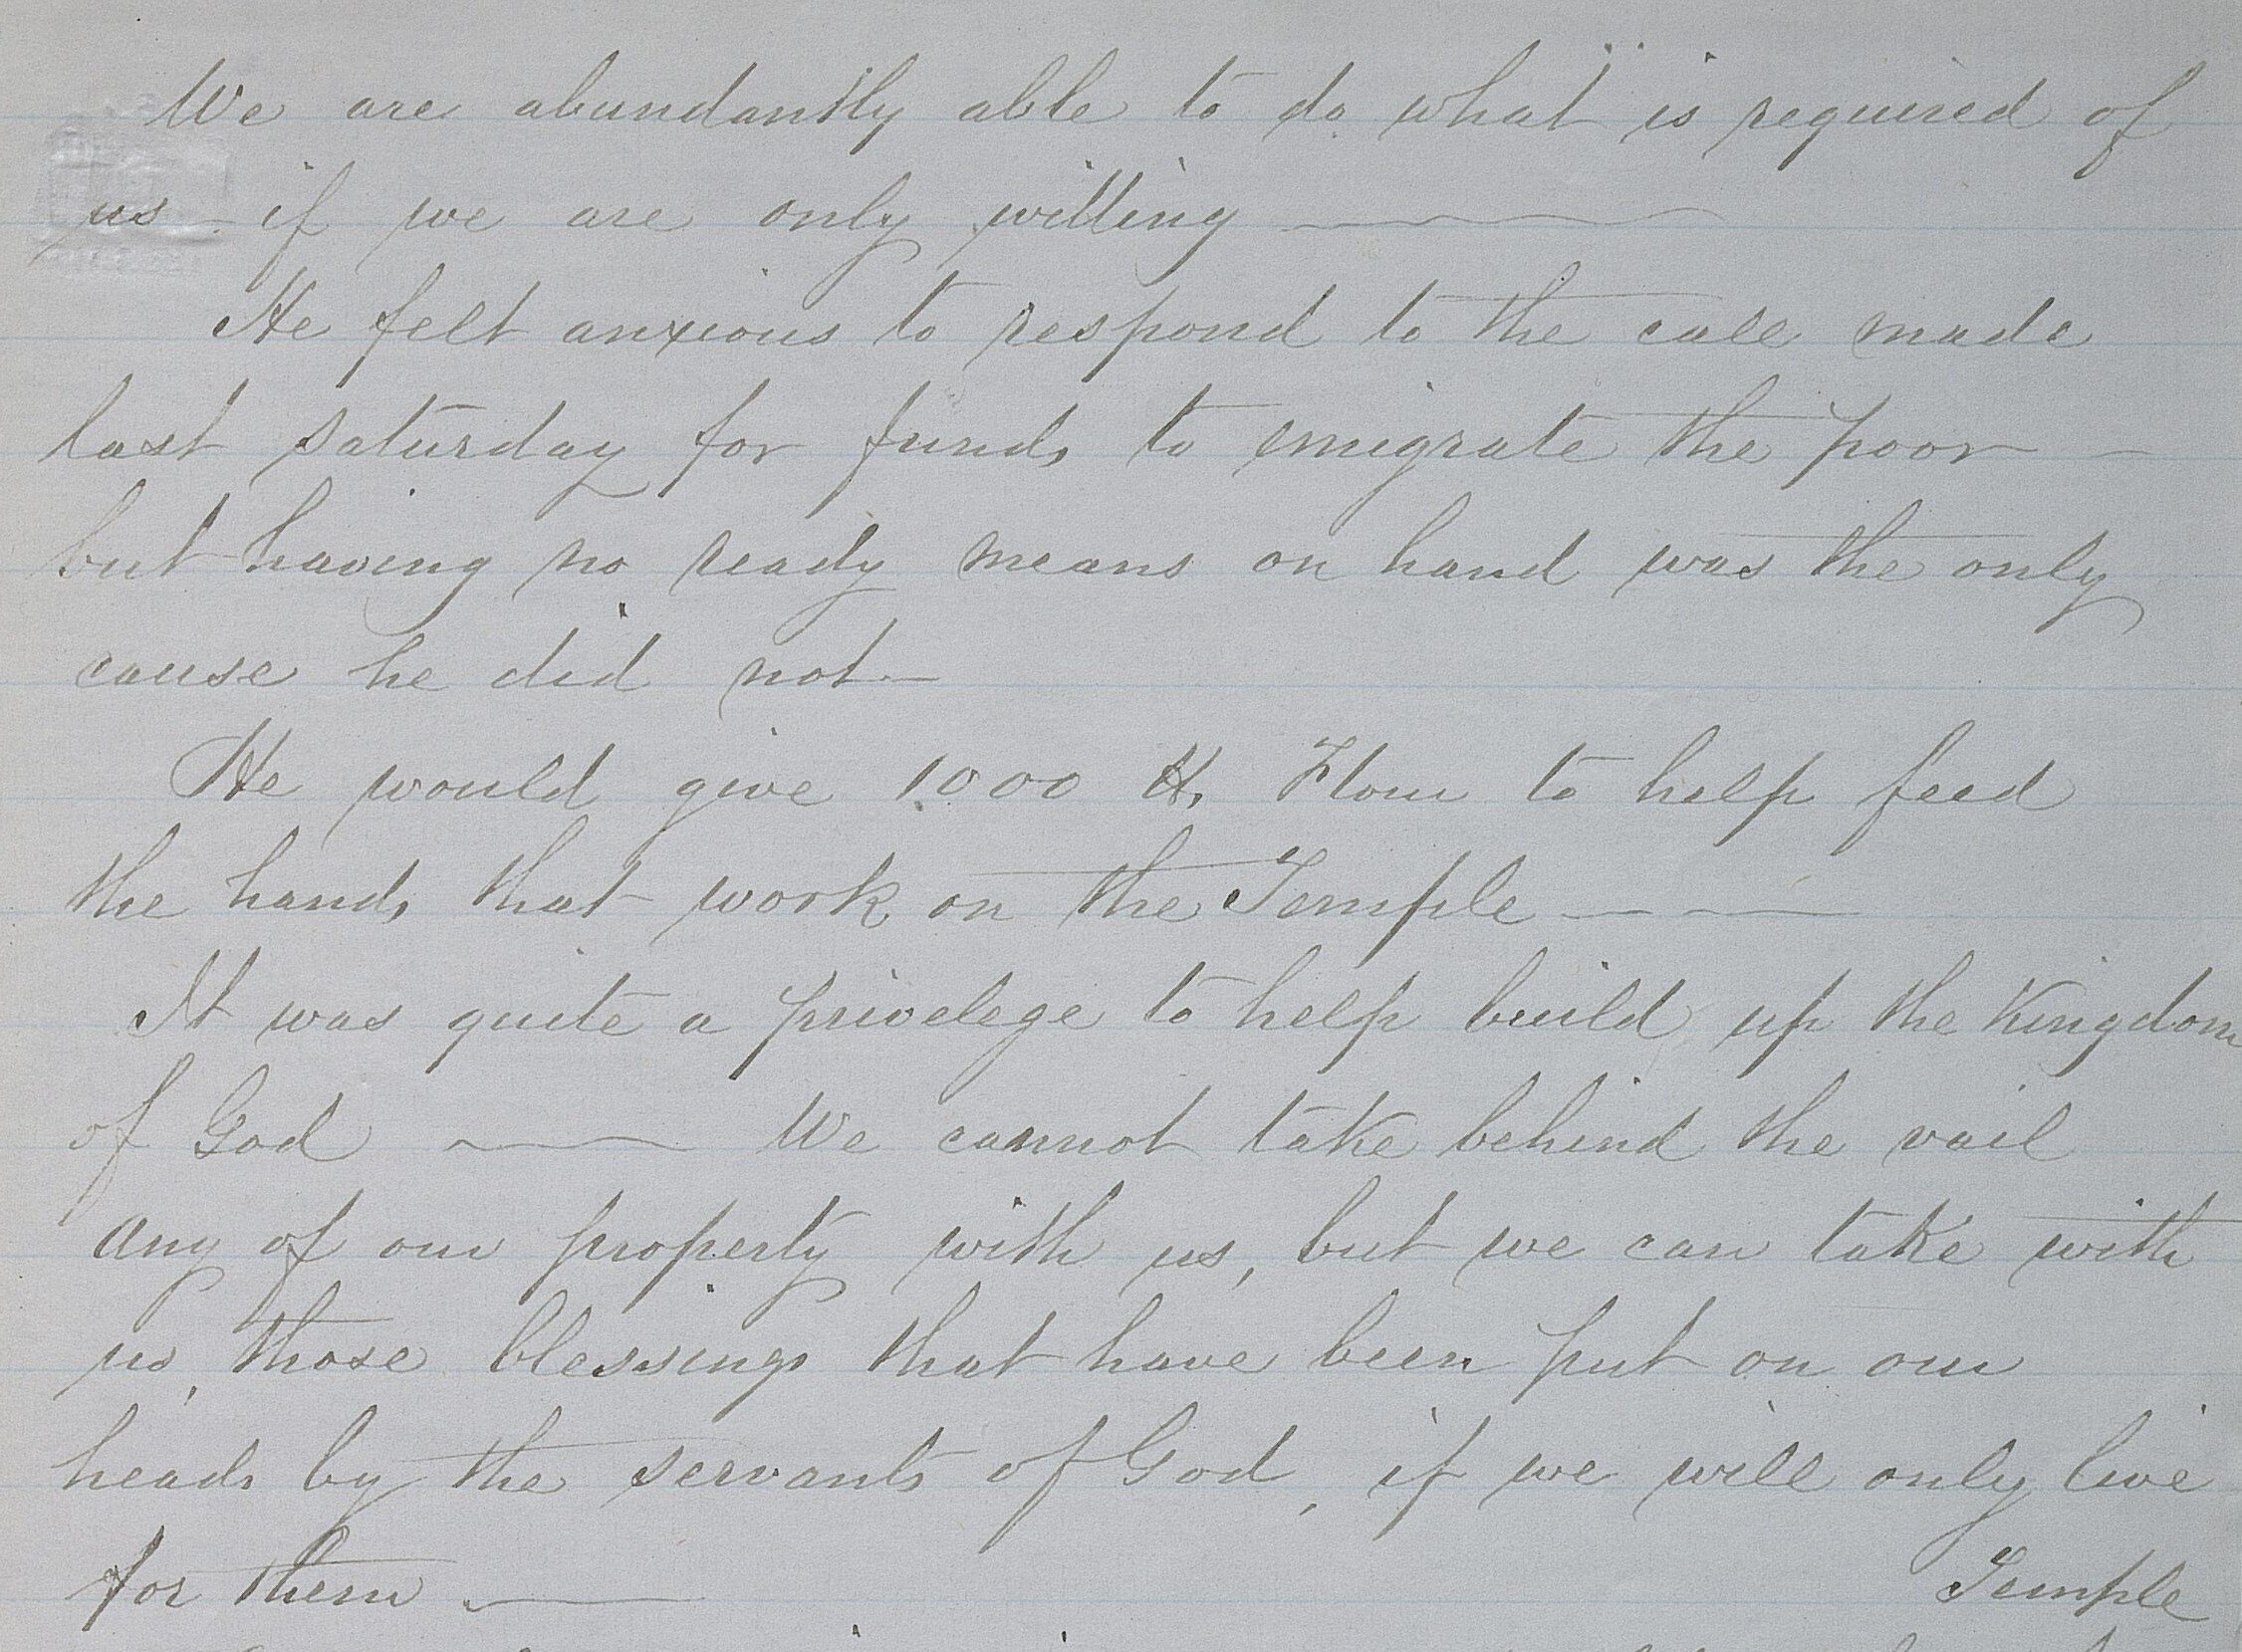 We are abundantly able to do what is required of
us - if we are only willing ———
He felt anxious to respond to the call made
last saturday for funds to emigrate the poor —
but having no ready means on hand was the only
cause he did not —
He would give 1000 ℔. Flour to help feed
the hands that work on the Temple — —
It was quite a privelege to help build up the Kingdom
of God —— We cannot take behind the vail
any of our property with us, but we can take with
us, those blessings that have been put on our
heads by the servants of God, if we will only live
for them ——— Temple